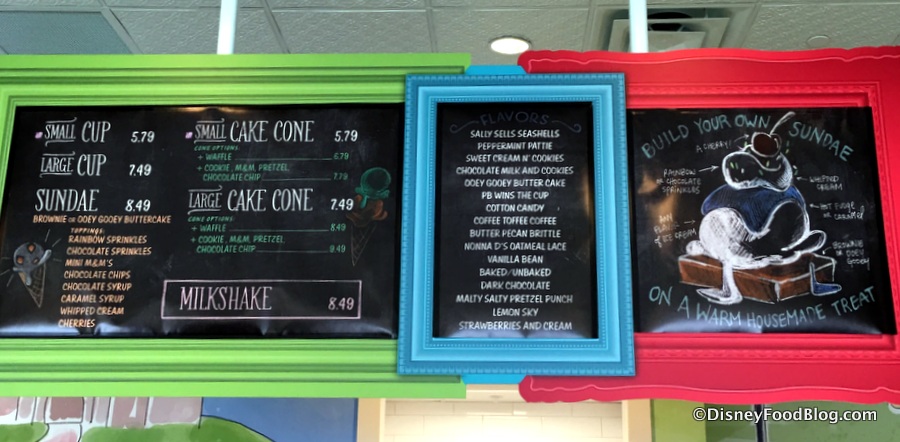 SMALL CUP 5.79
LARGE CUP 7.49
SUNDAE 8.49
BROWNIE OR OOEY GOOEY BUTTERCAKE
TOPPINGS:
RAINBOW SPRINKLES
CHOCOLATE SPRINKLES
MINI M&M'S
CHOCOLATE CHIPS
CHOCOLATE SYRUP
CARAMEL SYRUP
WHIPPED CREAM
CHERRIES
SMALL CAKE CONE 5.79
CONE OPTIONS:
+ WAFFLE 6.79
+ COOKIE, M&M, PRETZEL,
CHOCOLATE CHIP 7.79
LARGE CAKE CONE 7.49
CONE OPTIONS:
+ WAFFLE 8.49
+ COOKIE, M&M, PRETZEL,
CHOCOLATE CHIP 9.49
MILKSHAKE 8.49
FLAVORS
SALLY SELLS SEASHELLS
PEPPERMINT PATTIE
SWEET CREAM N' COOKIES
CHOCOLATE MILK AND COOKIES
OOEY GOOEY BUTTER CAKE
PB WINS THE CUP
COTTON CANDY
COFFEE TOFFEE COFFEE
BUTTER PECAN BRITTLE
NONNA D'S OATMEAL LACE
VANILLA BEAN
BAKED/UNBAKED
DARK CHOCOLATE
MALTY SALTY PRETZEL PUNCH
LEMON SKY
STRAWBERRIES AND CREAM
BUILD YOUR OWN SUNDAE
A CHERRY!
RAINBOW
OR CHOCOLATE
SPRINKLES
WHIPPED
CREAM
HOT FUDGE
OR CARAMEL
ANY
OF ICE CREAM
BROWNIE
OR OOEY
GOOEY
ON A WARM HOUSEMADE TREAT
©DisneyFoodBlog.com